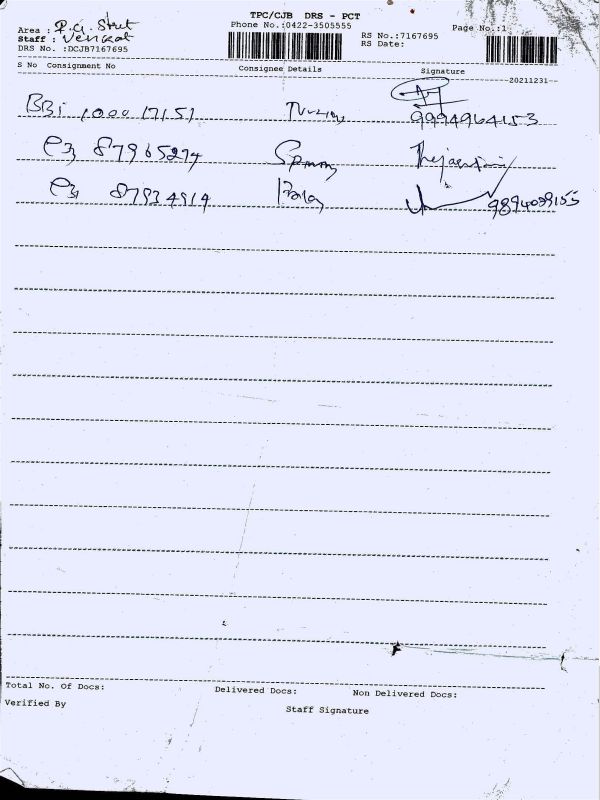 TPC/CJB DRS - PCT
Area : P.G. Street Phone No.:0422-3505555 Page No.:1
Staff : Venkat RS No.:7167695
DRS No. :DCJB7167695 RS Date:
S No Consignment No Consignee Details Signature
--20211231--
BBI 100017151 9994964153
87965274
87934914 9894039155
Total No. Of Docs: Delivered Docs: Non Delivered Docs:
Verified By Staff Signature